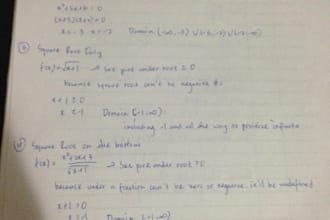 x²+5x+6 = 0
(x+3)(x+2) = 0
x = -3 x = -2 Domain (-∞,-3) ∪ (-3,-2) ∪ (-2,∞)
Square Root Only
f(x) = √x+1 → Set part under root ≥ 0
because square root can't be negative #s
x+1 ≥ 0
x ≥ -1 Domain [-1,∞)
including -1 and all the way to positive infinite
Square Root on the bottom
→ Set part under root > 0
because under a fraction can't be zero or negative, it'll be undefined
x+1 > 0
Domain (-1,∞)